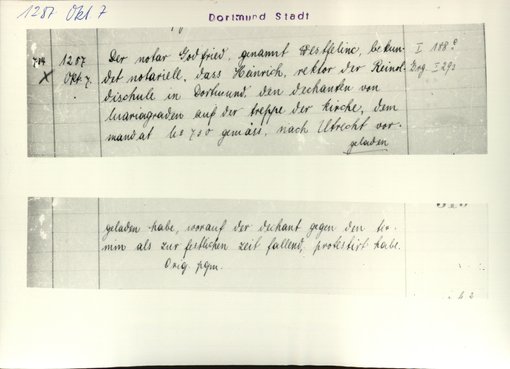 1287 Okt. 7
Dortmund Stadt
1287 Okt. 7.
Der notar Godfried, genannt Westfeline, bekun-
det notariell, dass Heinrich, rektor der Reinol-
dischule in Dortmund, den dechanten von
Mariagraden auf der treppe der kirche, dem
mandat No 730 gemäss, nach Utrecht vor-
geladen
geladen habe, worauf der dechant gegen den ter-
min als zur festlichen zeit fallend, protestirt habe.
Orig. pgm.